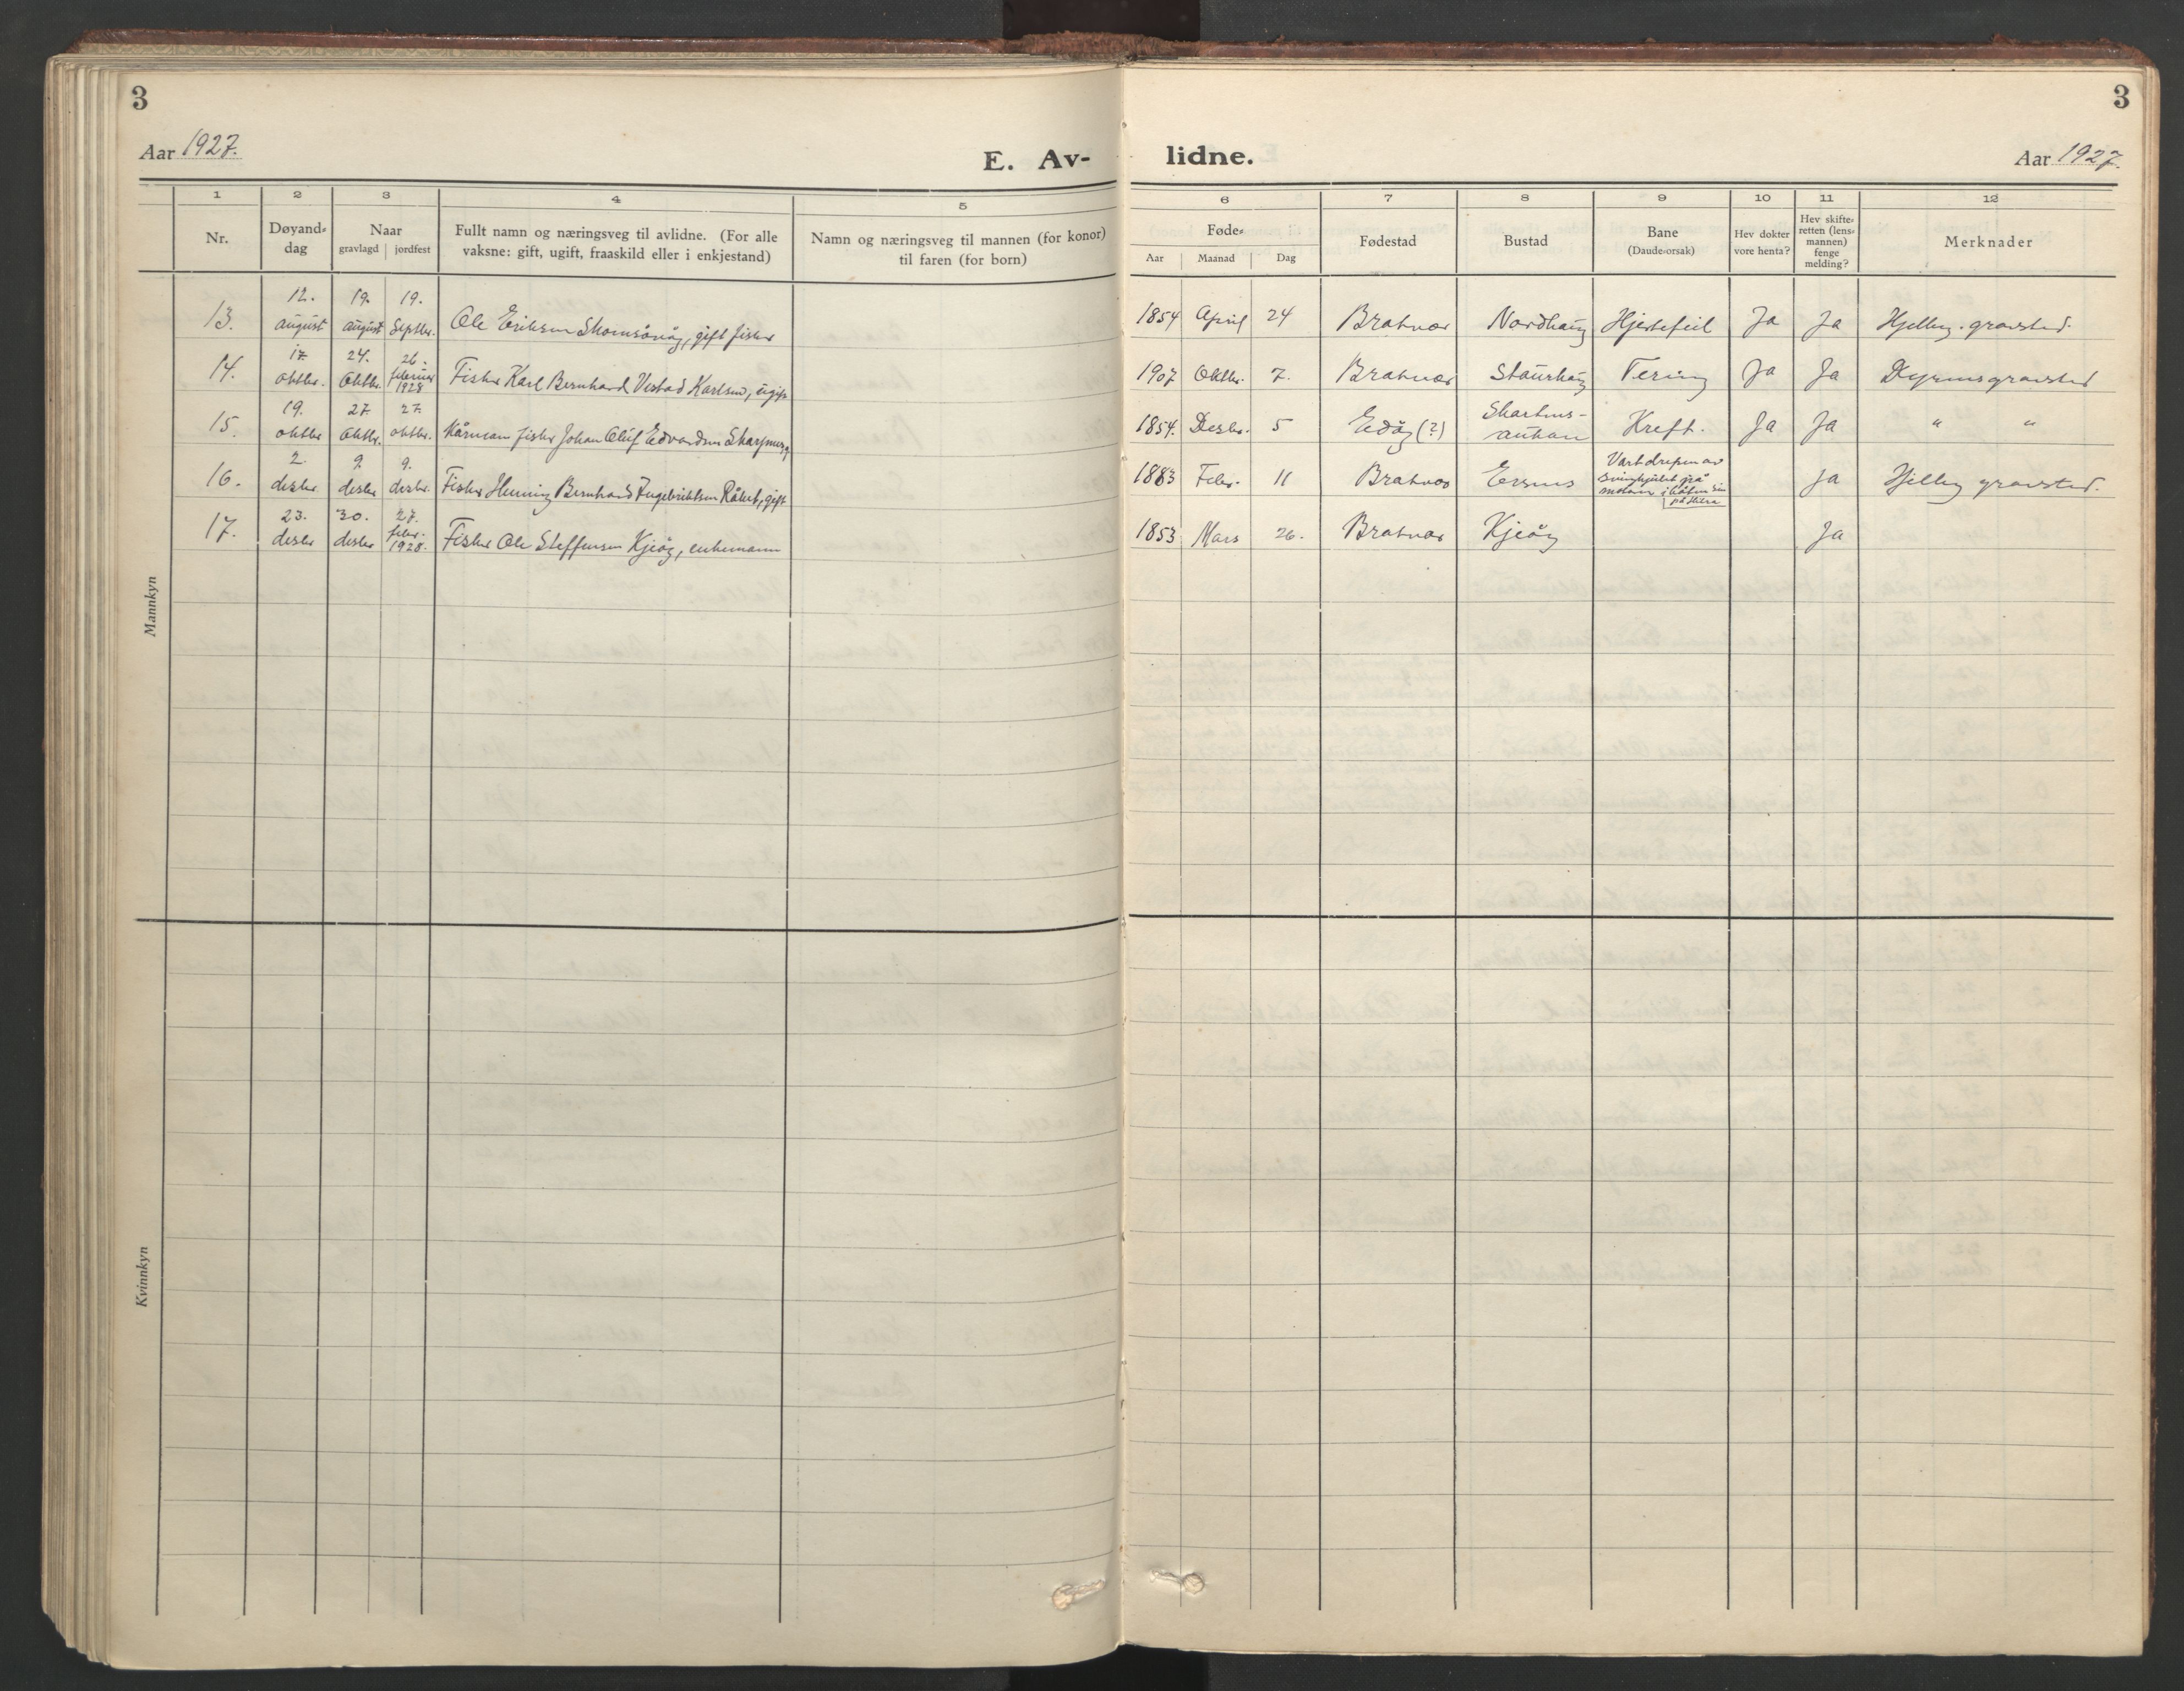 3
3
Aar 1927.
E. Av-
lidne.
Aar 1927.
1 2 3 4 5
6 7 8 9 10 11 12
Nr.
Døyand-
dag
Naar
gravlagd jordfest
Fullt namn og næringsveg til avlidne. (For alle
vaksne: gift, ugift, fraaskild eller i enkjestand)
Namn og næringsveg til mannen (for konor)
til faren (for born)
Føde-
Aar Maanad Dag
Fødestad
Bustad
Bane
(Daude-orsak)
Hev dokter
vore henta?
Hev skifte-
retten (lens-
mannen)
fenge
melding?
Merknader
Mannkyn
13. 12. august 19. august 19. Septbr. Ole Eriksen, gift fisker 1854 April 24 Bratvær Nordhaug Hjertefeil Ja Ja gravsted.
14. 17. oktbr. 24. Oktbr. 26. februar 1928 Fisker Karl Bernhard Vestad Karlsen, ugift 1907 Oktbr. 7. Bratvær Staurhaug Tering Ja Ja gravsted
15. 19. oktbr 27. Oktbr. 27. oktbr. Kårmann fisker Johan Oluf Edvardsen 1854. Desbr. 5 Edøy (?) Kreft. Ja Ja " "
16. 2. desbr 9. desbr 9. desbr. Fisker Henning Bernhard Ingebriktsen Råket, gift 1883 Febr. 11 Bratvær Ersnes Vart drepen av svinghjulet på motoren i båten sin på Ja gravsted.
17. 23. desbr 30. desbr 27. febr. 1928. Fisker Ole Steffensen Kjeøy, enkemann 1853 Mars 26. Bratvær Kjeøy Ja
Kvinnkyn